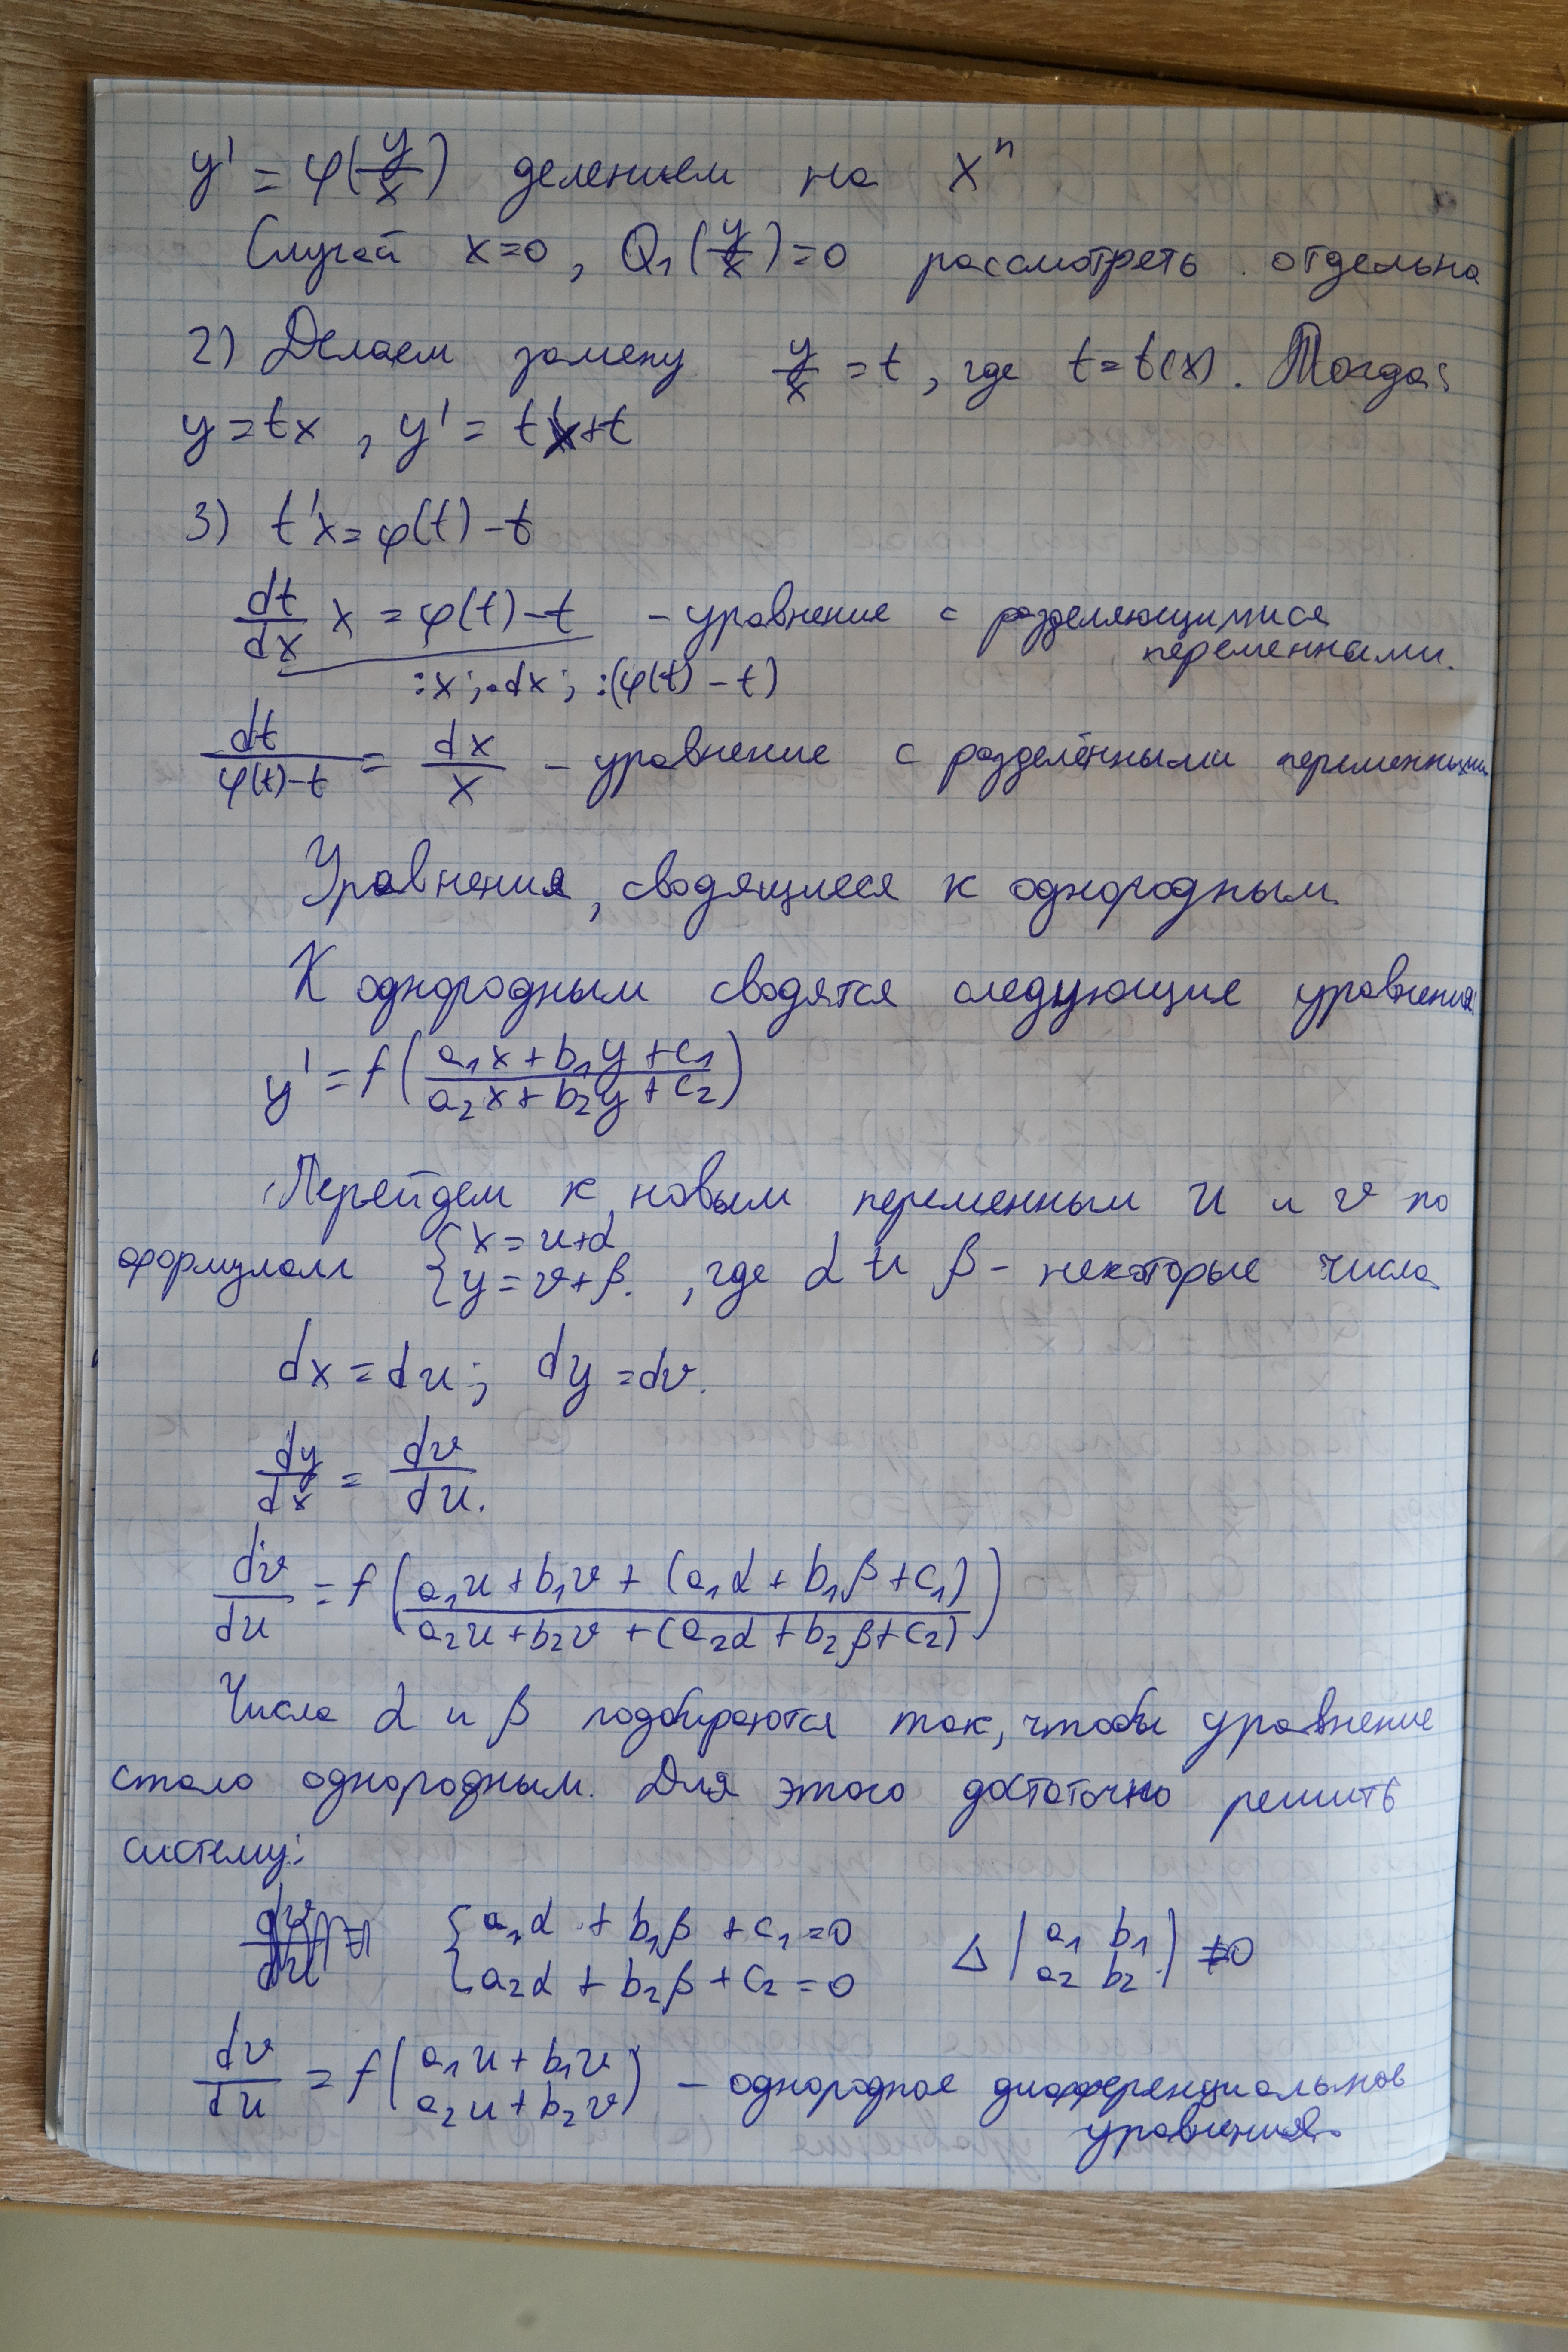 y' = φ(y/x) делением на xⁿ
Случай x=0, Q₁(y/x)=0 рассмотреть отдельно
2) Делаем замену y/x = t, где t=t(x). Тогда:
y=tx, y' = t'x+t
3) t'x=φ(t)-t
dt/dx x = φ(t)-t - уравнение с разделяющимися
переменными.
:x; ·dx; :(φ(t)-t)
dt/(φ(t)-t) = dx/x - уравнение с разделёнными переменными
Уравнения, сводящиеся к однородным.
К однородным сводятся следующие уравнения:
y' = f((a₁x+b₁y+c₁)/(a₂x+b₂y+c₂))
Перейдем к новым переменным u и v по
формулам { x=u+α
{ y=v+β. , где α и β - некоторые числа
dx=du; dy=dv.
dy/dx = dv/du.
dv/du = f((a₁u+b₁v+(a₁α+b₁β+c₁))/(a₂u+b₂v+(a₂α+b₂β+c₂)))
Числа α и β подбираются так, чтобы уравнение
стало однородным. Для этого достаточно решить
систему:
{ a₁α + b₁β + c₁=0
{ a₂α + b₂β + c₂=0 Δ |a₁ b₁
a₂ b₂| ≠0
dv/du = f(a₁u+b₁v
a₂u+b₂v) - однородное дифференциальное
уравнения.